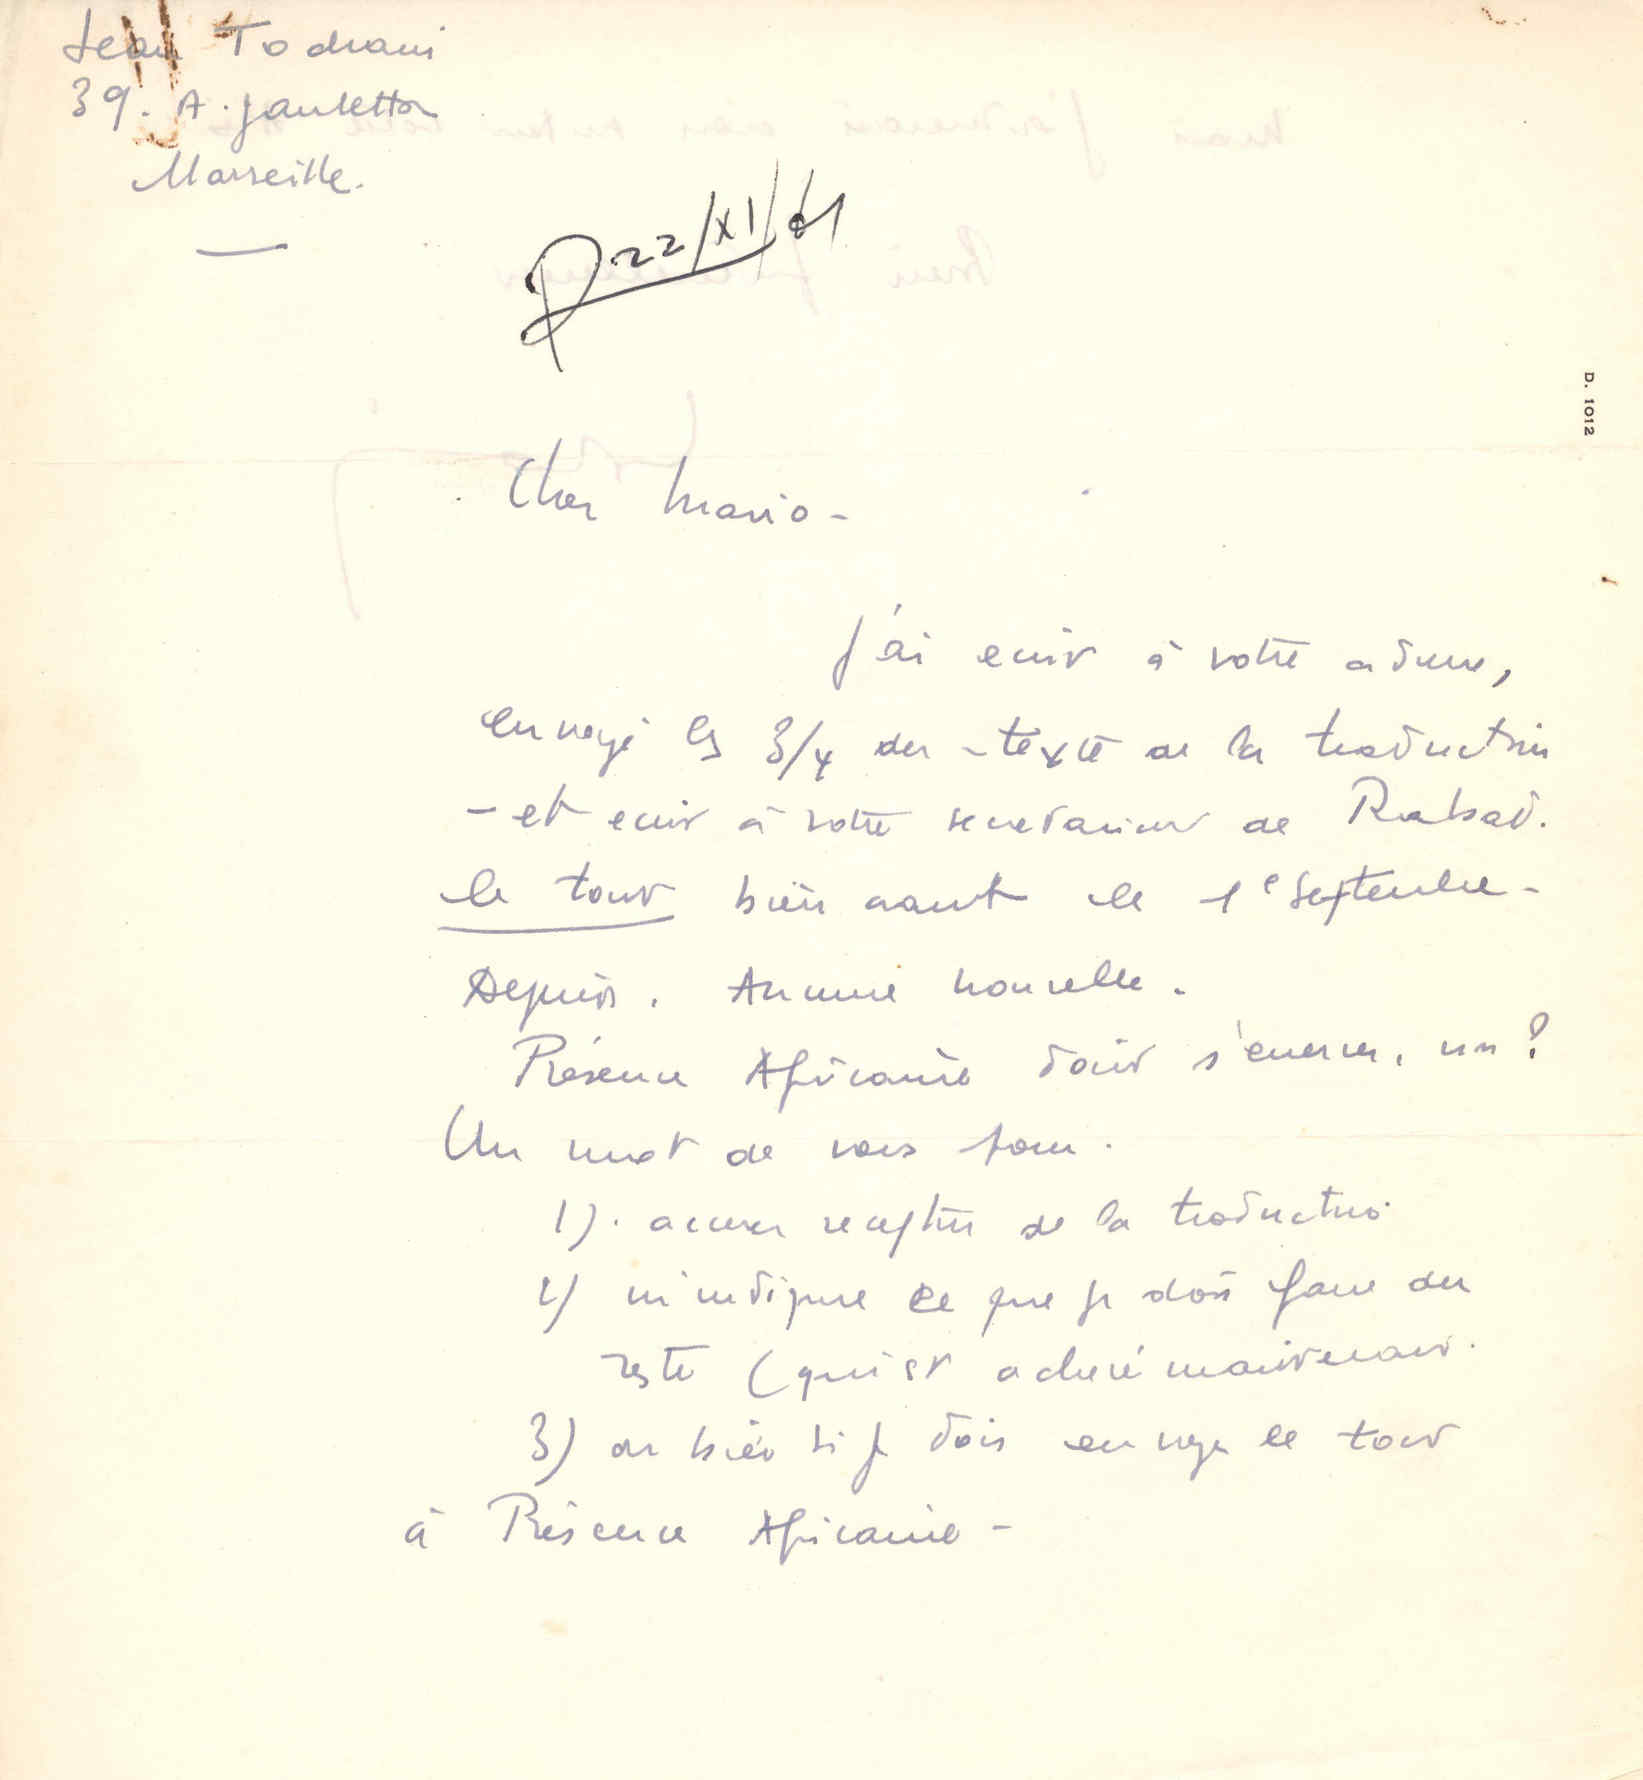 Jean Todrani
39. A. Jauretta
Marseille.
R 22/XI/61
D. 1012
Cher Mario -
J'ai écrit à votre adresse,
envoyé les 3/4 du texte de la traduction
- et écrit à votre secrétariat de Rabat.
le tout bien avant le 1e Septembre -
Depuis. Aucune nouvelle.
Présence Africaine doit s'énerver, non ?
Un mot de vous pour.
1). accuser réception de la traduction
2) m'indiquer ce que je dois faire du
reste (qui est achevé maintenant.
3) ou bien si je dois envoyer le tout
à Présence Africaine -